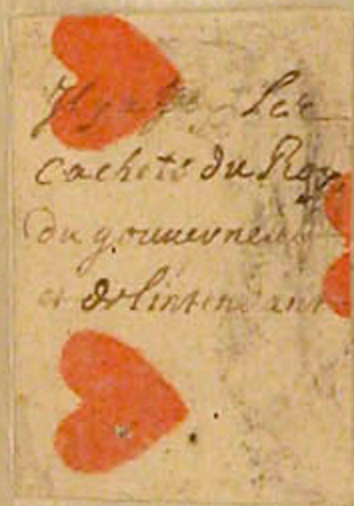 Il y a Les
cachets du Roy
du gouuerneur
et de lintendant